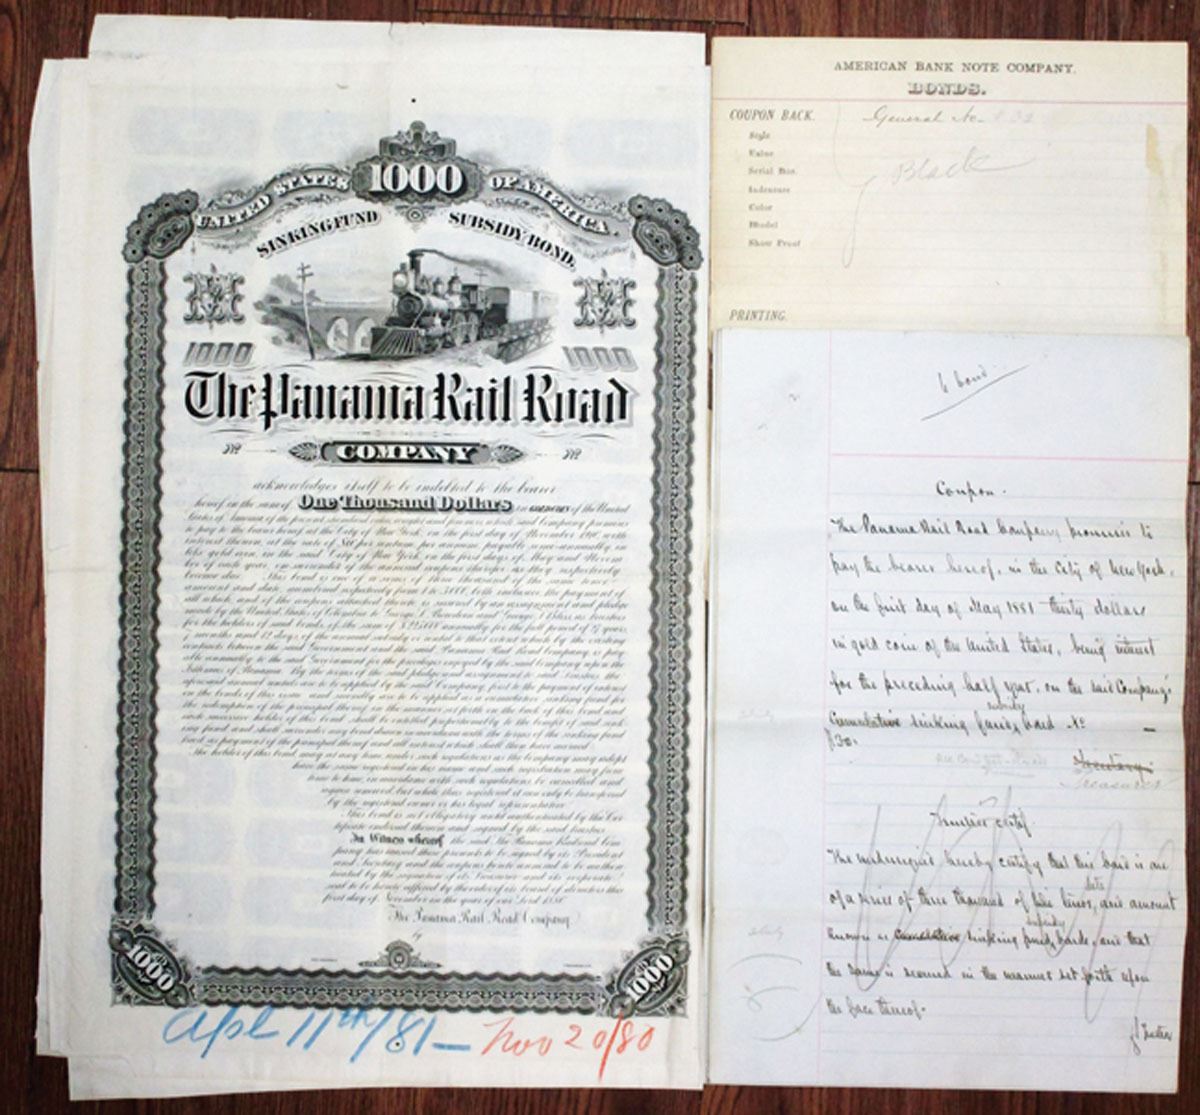 UNITED STATES 1000 OF AMERICA.
SINKING FUND SUBSIDY BOND.
M M
1000 1000
The Panama Rail Road
No COMPANY No
acknowledges itself to be indebted to the bearer
hereof in the sum of One Thousand Dollars in of the United
States of America of the present standard value, weight and fineness, which said Company promises
to pay to the bearer hereof at the City of New York, on the first day of November 1910, with
interest thereon, at the rate of Six per centum per annum payable semi-annually, in
like gold coin, in the said City of New York on the first days of May and Novem
ber of each year, on surrender of the annexed coupons therefor as they respectively
become due. This bond is one of a series of three thousand of the same tenor
amount and date, numbered respectively from 1 to 3,000 both inclusive, the payment of
all which and of the coupons attached thereto is secured by an assignment and pledge
made by the United States of Colombia to George as trustees
for the holders of said bonds of the sum of $225,000 annually for the full period of 27 years
7 months and 12 days of the annual subsidy or rental to the extent which by the existing
contracts between the said Government and the said Panama Rail Road Company is pay
able annually to the said Government for the privileges enjoyed by the said Company upon the
Isthmus of Panama. By the terms of the said pledge and assignment to said Trustees the
aforesaid annual rental are to be applied by the said Company, first to the payment of interest
on the bonds of this issue and secondly are to be applied as a cumulative sinking fund for
the redemption of the principal thereof in the manner set forth on the back of this bond and
each successive holder of this bond shall be entitled proportionately to the benefit of said sink-
ing fund and shall surrender any bond drawn in accordance with the terms of the sinking fund
fixed as payment of the principal thereof and all interest which shall then have accrued.
The holder of this bond, may at any time under such regulations as the Company may adopt
have the same registered in his name and such registration may from
time to time, in accordance with such regulations be cancelled and
again renewed, but while thus registered it can only be transferred
by the registered owner or his legal representative.
This bond is not obligatory until authenticated by the Cer-
tificate endorsed thereon and signed by the said trustees
In Witness whereof the said The Panama Railroad Com-
pany has caused these presents to be signed by its President
and Secretary and the coupons hereto annexed to be authen
ticated by the signature of its Treasurer and its corporate
seal to be hereto affixed by the order of its board of directors this
first day of November in the year of our Lord 1880
The Panama Rail Road Company
by
1000 1000
Apl 11th/81 — Nov 20/80
AMERICAN BANK NOTE COMPANY.
BONDS.
COUPON BACK. General No.
Style
Value
Serial Nos.
Indenture
Color Black
Model
Show Proof
PRINTING.
bond
Coupon.
The Panama Rail Road Company promises to
pay the bearer hereof, in the City of New York,
on the first day of May 1881 thirty dollars
in gold coin of the United States, being interest
for the preceding half year, on the said Company's
subsidy
Cumulative sinking fund, bond No —
$30.
Secretary
Treasurer
Trustees certif.
The undersigned hereby certify that this bond is one
date
of a series of three thousand of like tenor, and amount
subsidy
known as cumulative sinking fund, bonds, and that
the same is secured in the manner set forth upon
the face thereof.